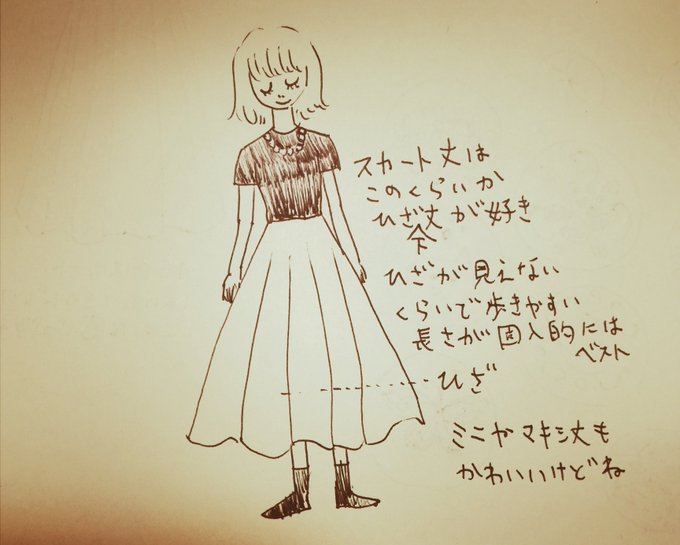 スカート丈は
このくらいか
ひざ丈が好き
下
ひざが見えない
くらいで歩きやすい
長さが固人的には
ベスト
ひざ
ミニやマキシ丈も
かわいいけどね